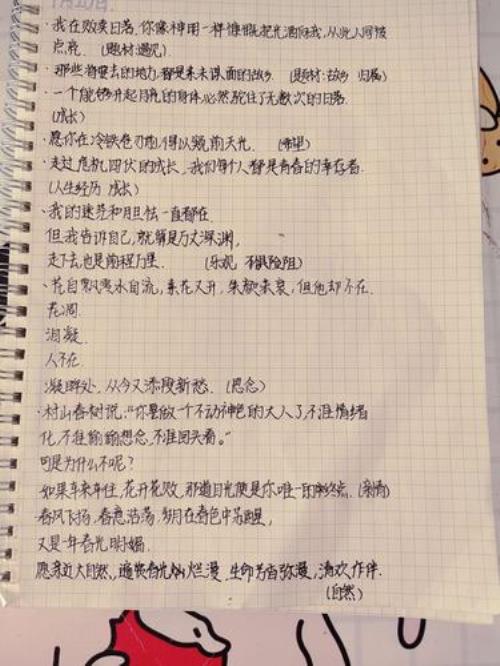 7月20日.
·我在贩卖日落.你像神明一样慷慨地把光洒向我,从此人间被
点亮. (题材:遇见)
·那些将要去的地方,都是未谋面的故乡. (题材:故乡 归属)
·一个能够升起月亮的身体,必然驮住了无数次的日落.
(成长)
·愿你在冷铁卷刃前,得以窥前天光. (希望)
·走过危机四伏的成长,我们每个人都是青春的幸存者.
(人生经历 成长)
·我的迷茫和胆怯一直都在.
但我告诉自己,就算是万丈深渊,
走下去,也是前程万里. (乐观 不惧险阻)
·花自飘零水自流,素花又开,朱颜未衰,但他却不在.
花凋.
泪凝.
人不在.
凝眸处,从今又添一段新愁. (思念)
·村山春树说:“你要做一个不动声色的大人了,不准情绪
化,不准偷偷想念,不准回头看。”
可是为什么不呢?
如果车来车往,花开花败,那道目光便是你唯一的终点. (亲情)
春风飞扬,春意浩荡,岁月在春色中苏醒,
又是一年春光明媚.
愿亲近大自然,遍赏春光灿烂漫,生命芳香弥漫,清欢作伴.
(自然)